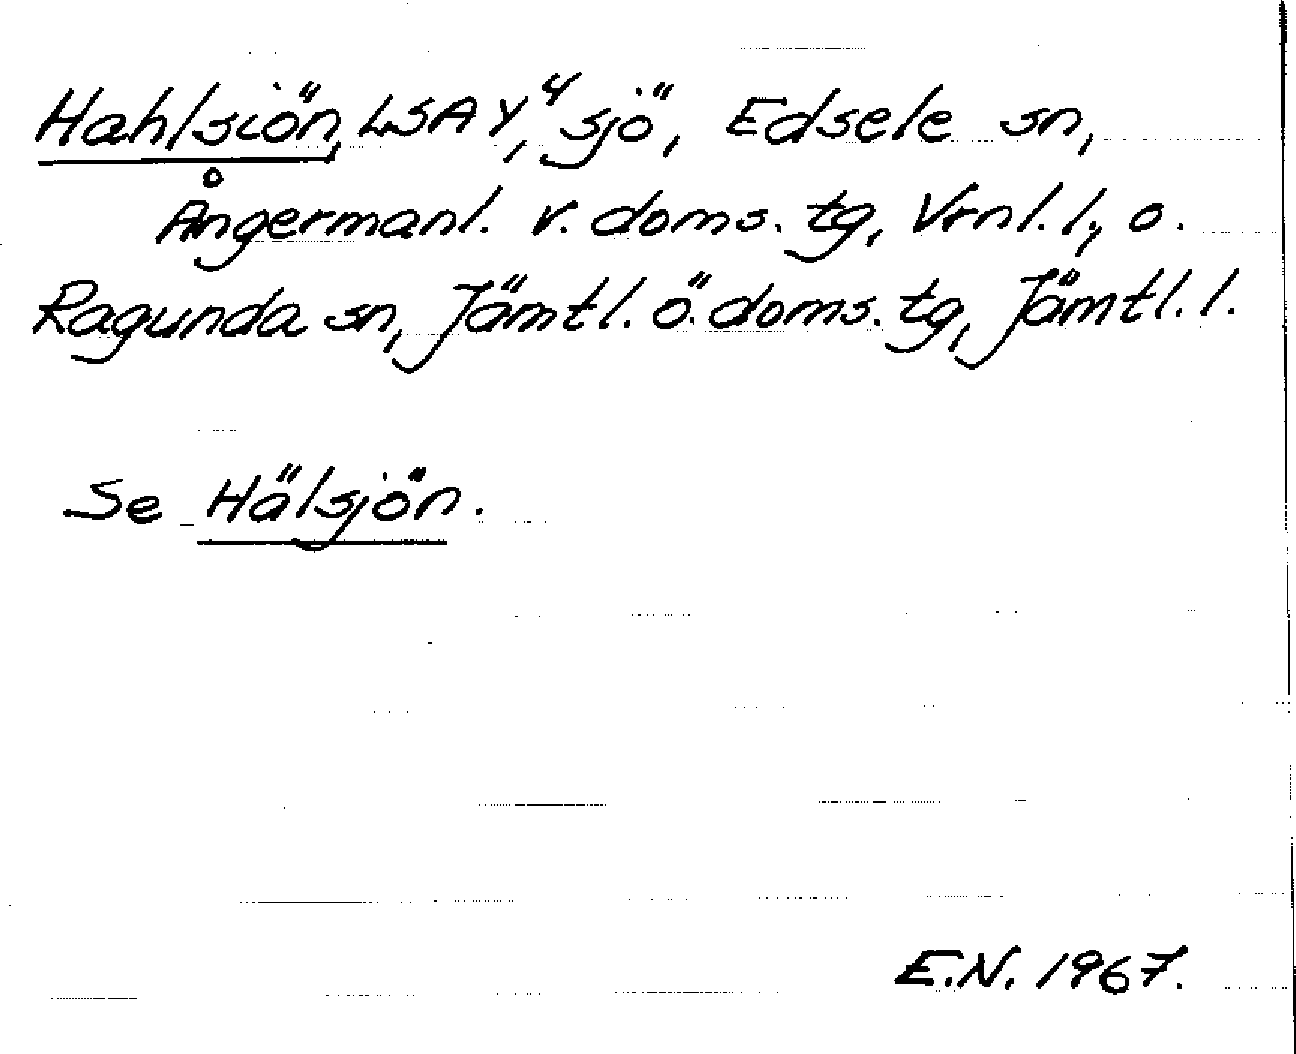 Hahlsiön, LSA Y4, sjö, Edsele sn,
Ångermanl. v. doms. tg, Vrnl. l., o.
Ragunda sn, Jämtl. ö. doms. tg, Jämtl. l.
Se Hälsjön.
E.N. 1967.